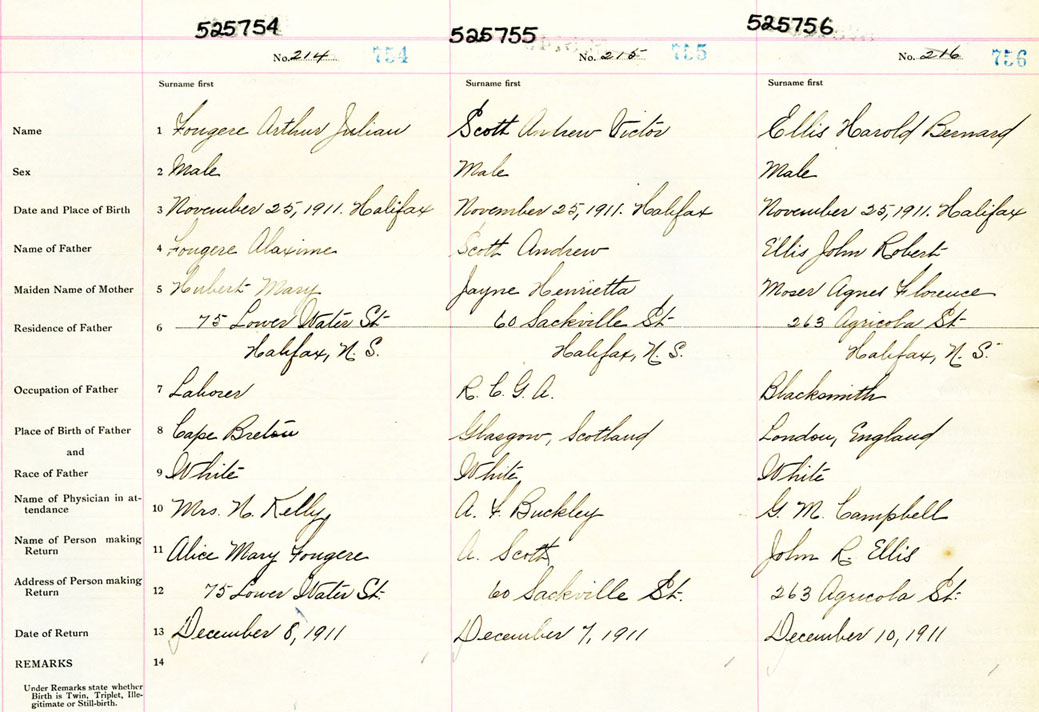 525754 525755 525756
No. 214 754 No. 215 755 No. 216 756
Surname first Surname first Surname first
Name 1 Fougere Arthur Julian Scott Andrew Victor Ellis Harold Bernard
Sex 2 Male Male Male
Date and Place of Birth 3 November 25, 1911. Halifax November 25, 1911. Halifax November 25, 1911. Halifax
Name of Father 4 Fougere Alaxime Scott Andrew Ellis John Robert
Maiden Name of Mother 5 Hubert Mary Jayne Henrietta Moser Agnes Florence
Residence of Father 6 75 Lower Water St. 60 Sackville St. 263 Agricola St.
Halifax, N. S. Halifax, N. S. Halifax, N. S.
Occupation of Father 7 Laborer R. C. G. A. Blacksmith
Place of Birth of Father 8 Cape Breton Glasgow, Scotland London, England
and
Race of Father 9 White White White
Name of Physician in at-
tendance 10 Mrs. N. Kelly A. F. Buckley G. M. Campbell
Name of Person making
Return 11 Alice Mary Fougere A. Scott John R. Ellis
Address of Person making
Return 12 75 Lower Water St. 60 Sackville St. 263 Agricola St.
Date of Return 13 December 8, 1911 December 7, 1911 December 10, 1911
REMARKS 14
Under Remarks state whether
Birth is Twin, Triplet, Ille-
gitimate or Still-birth.